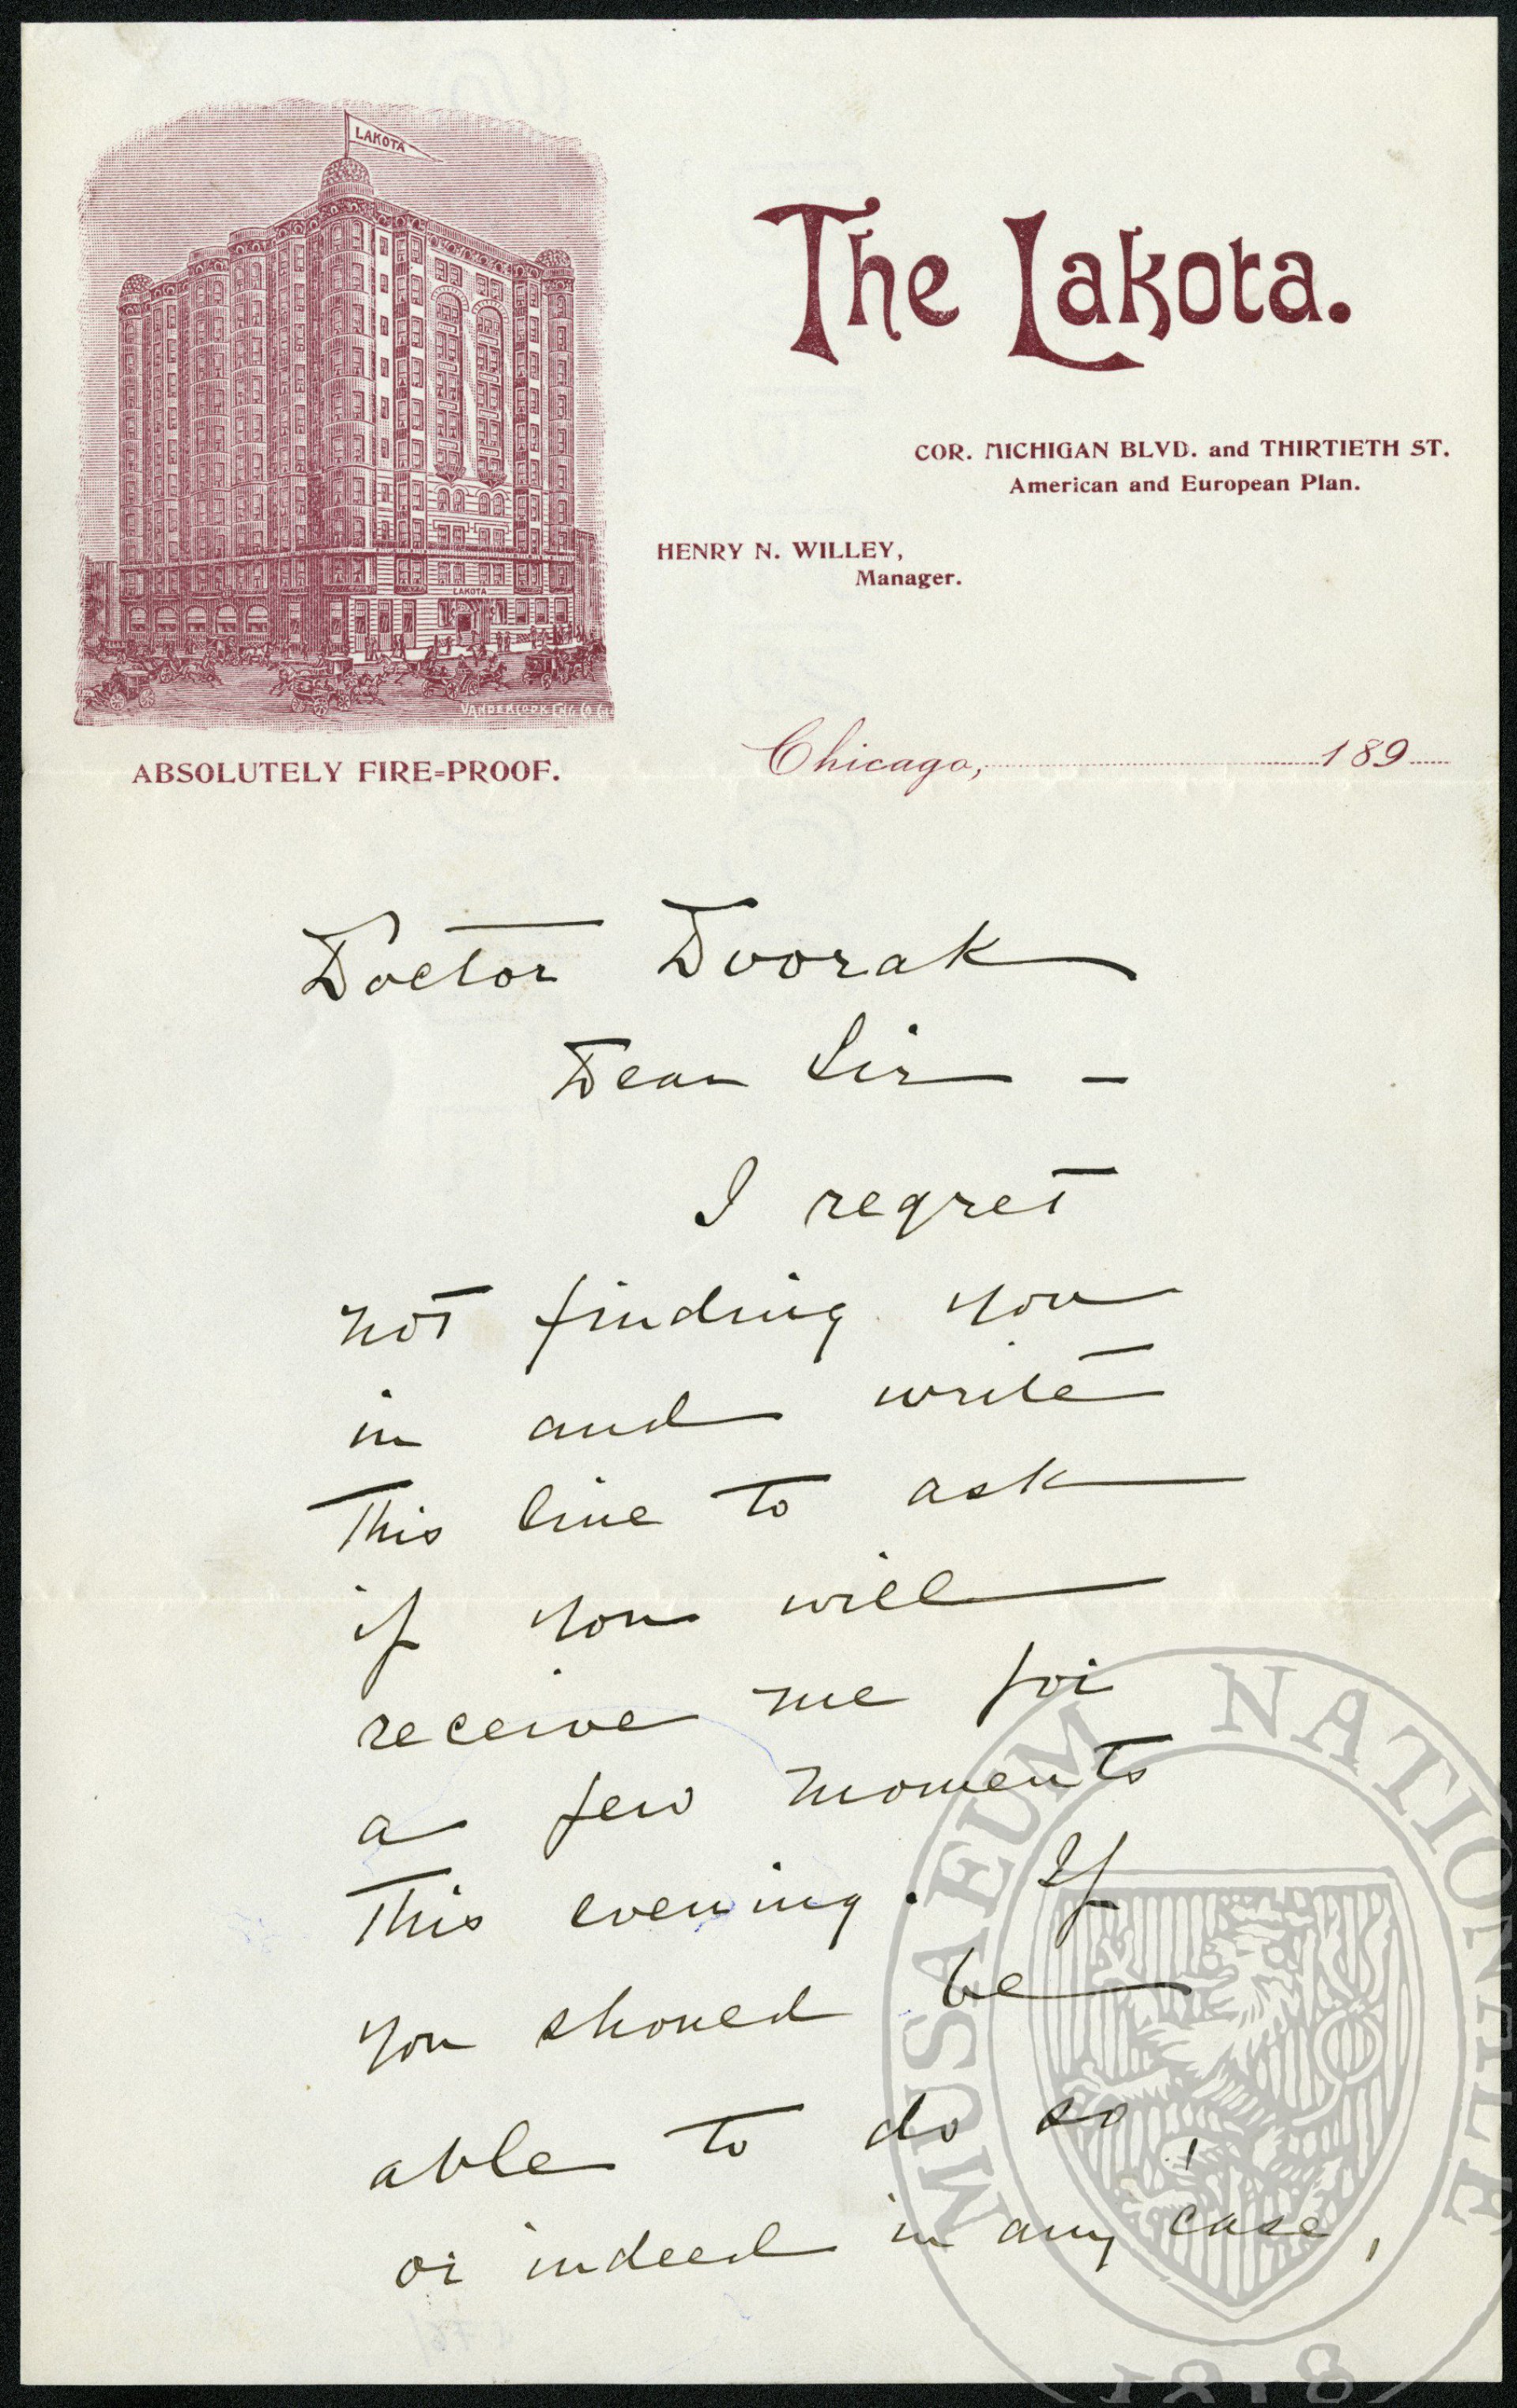 LAKOTA
The Lakota.
COR. MICHIGAN BLVD. and THIRTIETH ST.
American and European Plan.
HENRY N. WILLEY,
Manager.
LAKOTA
VANDERCOOK ENG. CO.
ABSOLUTELY FIRE=PROOF.
Chicago, 189
Doctor Dvorak
Dear Sir –
I regret
not finding you
in and write
this line to ask
if you will
receive me for
a few moments
this evening. If
you should be
able to do so,
or indeed in any case,
MUSAEUM NATIONALE
1818